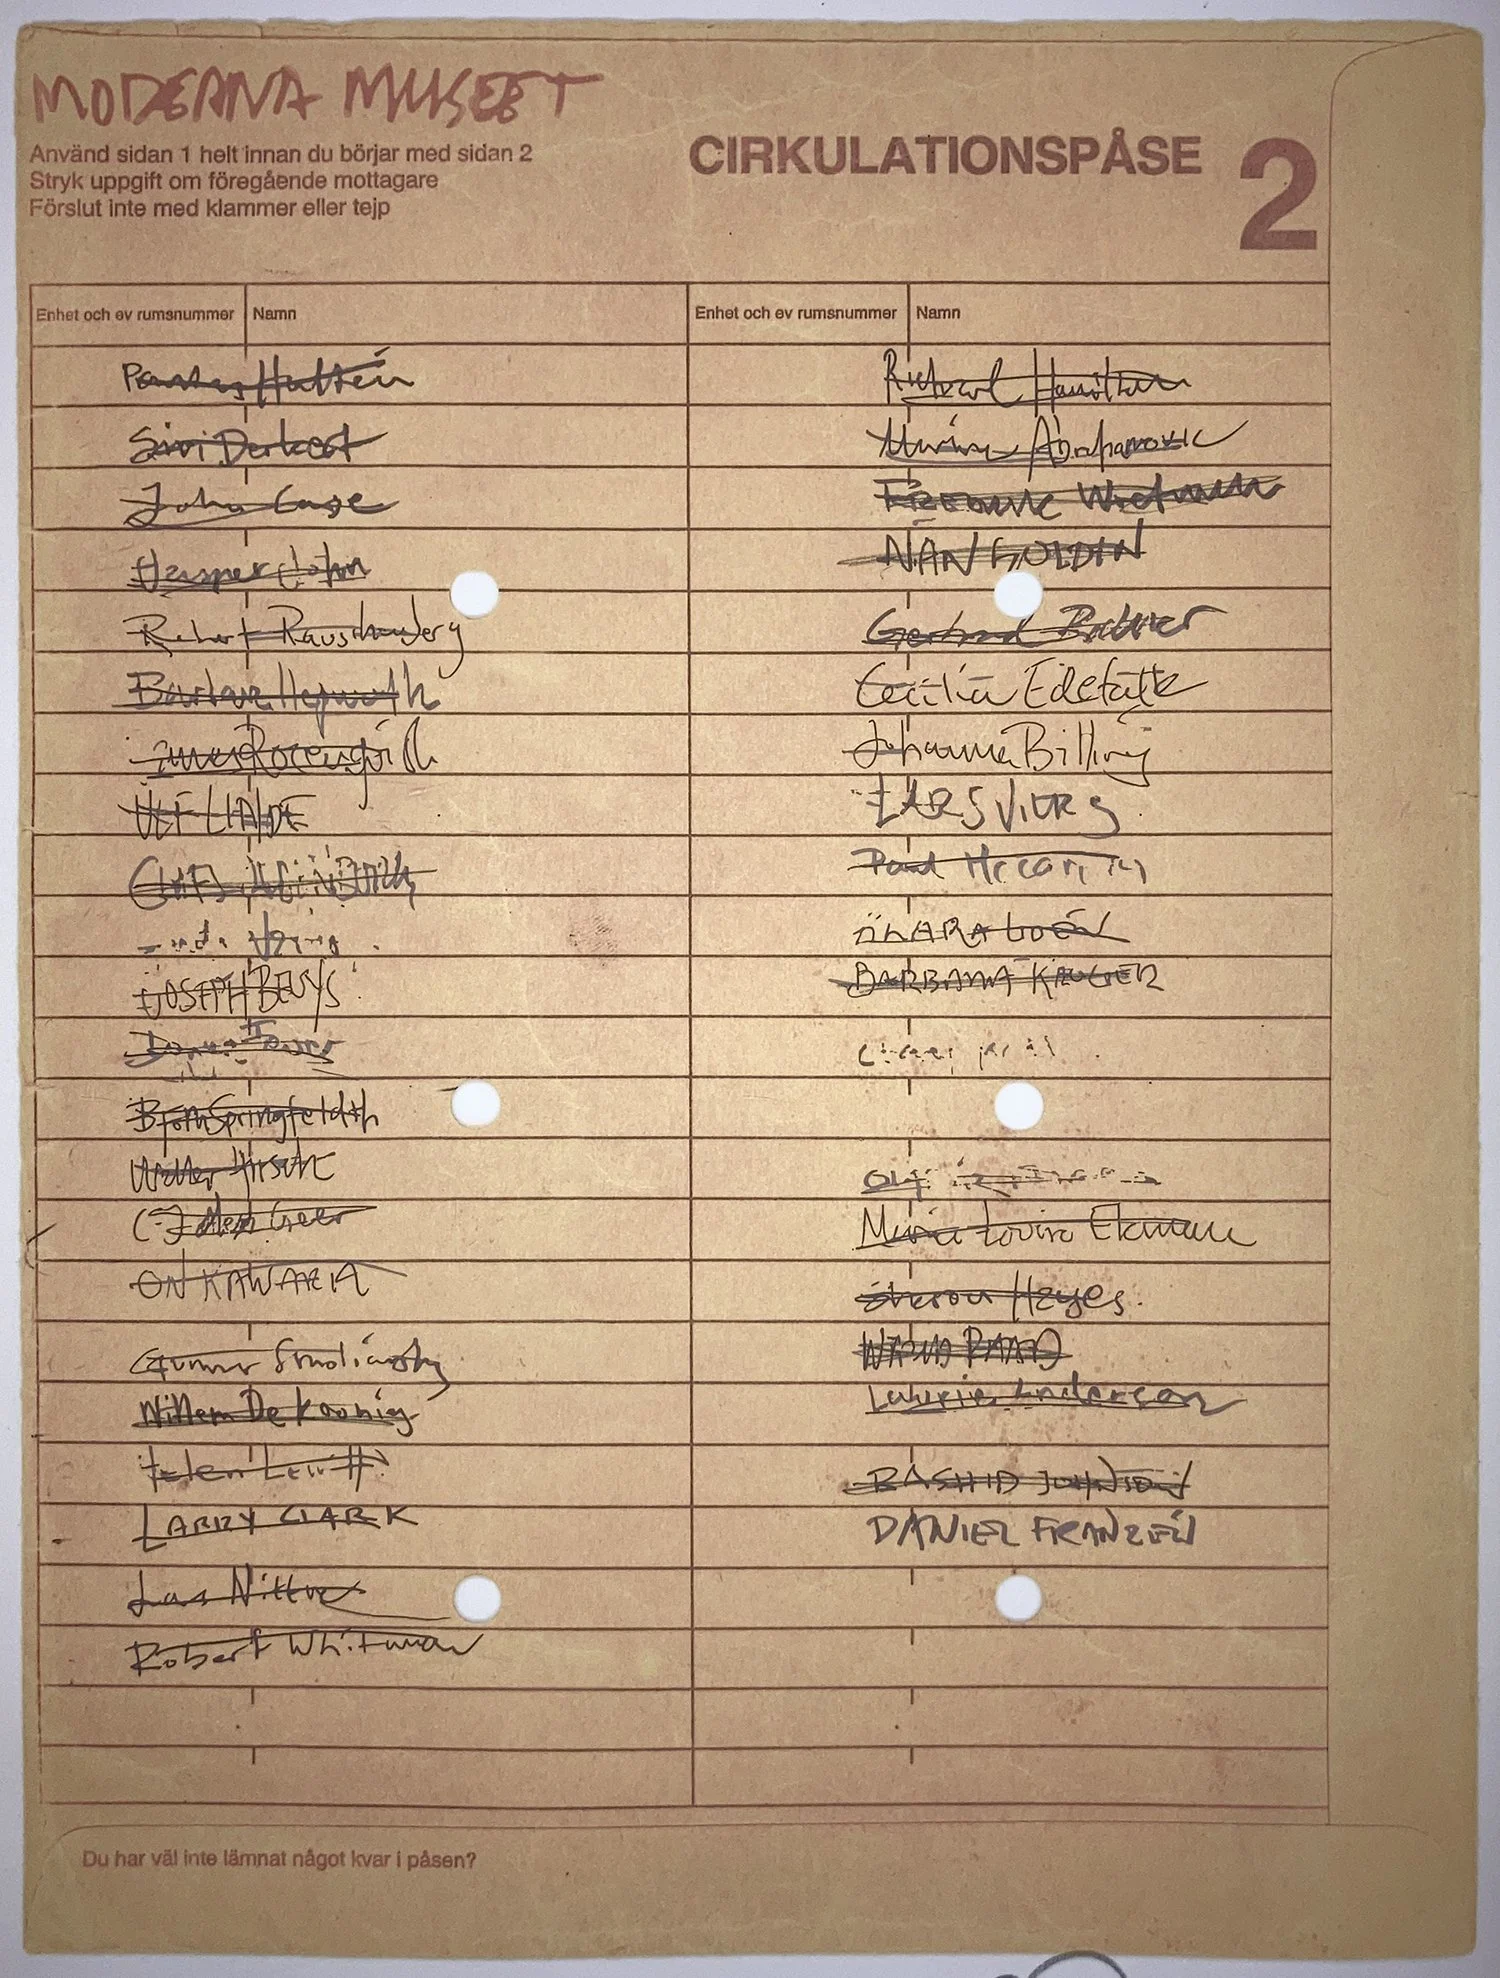 MODERNA MUSEET
Använd sidan 1 helt innan du börjar med sidan 2
Stryk uppgift om föregående mottagare
Förslut inte med klammer eller tejp
CIRKULATIONSPÅSE 2
Enhet och ev rumsnummer Namn
Pontus Hultén
Siri Derkert
John Cage
Jasper John
Robert Rauschenberg
Barbara Hepworth
Rosenquist
ULF LINDE
JOSEPH BEUYS
Björn Springfeldt
Walter Hirsch
Geer
ON KAWARA
Gunnar Smoliansky
Willem De Kooning
Helen Levitt
LARRY CLARK
Lars Nittve
Robert Whitman
Enhet och ev rumsnummer Namn
Richard Hamilton
Abrahamovic
NAN GOLDIN
Gerhard Richter
Cecilia Edefalk
Johanna Billing
LARS VILKS
Paul McCarthy
BARBARA KRUGER
Marie Louise Ekman
Sharon Hayes
WALID RAAD
Laurie Anderson
RASHID JOHNSON
DANIEL FRANZÉN
Du har väl inte lämnat något kvar i påsen?